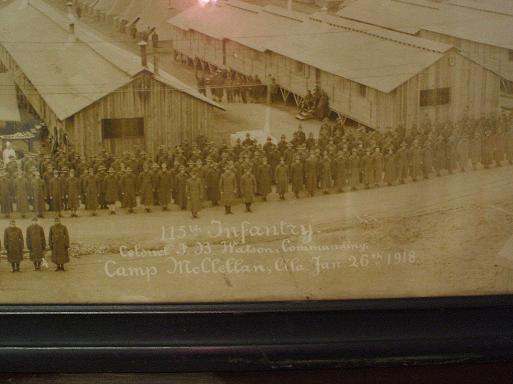 115th Infantry.
Colonel F. B. Watson, Commanding.
Camp McClellan, Ala. Jan. 26th 1918.